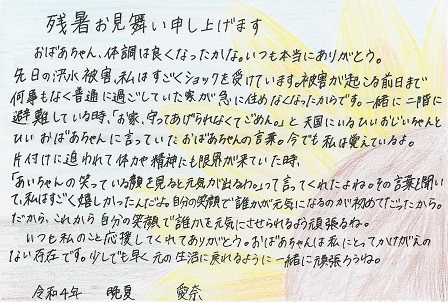 残暑お見舞い申し上げます
おばあちゃん、体調は良くなったかな。いつも本当にありがとう。
先日の洪水被害、私はすごくショックを受けています。被害が起こる前日まで
何事もなく普通に過ごしていた家が急に住めなくなったからです。一緒に二階に
避難している時、「お家、守ってあげられなくてごめん。」と天国にいるひいおじいちゃんと
ひいおばあちゃんに言っていたおばあちゃんの言葉。今でも私は覚えているよ。
片付けに追われて体力や精神にも限界が来ていた時、
「あいちゃんの笑っている顔を見ると元気が出るわ。」って言ってくれたよね。その言葉を聞い
て、私はすごく嬉しかったんだよ。自分の笑顔で誰かが元気になるのが初めてだったから。
だから、これから自分の笑顔で誰かを元気にさせられるよう頑張るね。
いつも私のこと応援してくれてありがとう。おばあちゃんは私にとってかけがえの
ない存在です。少しでも早く元の生活に戻れるように一緒に頑張ろうね。
令和4年 晩夏 愛奈